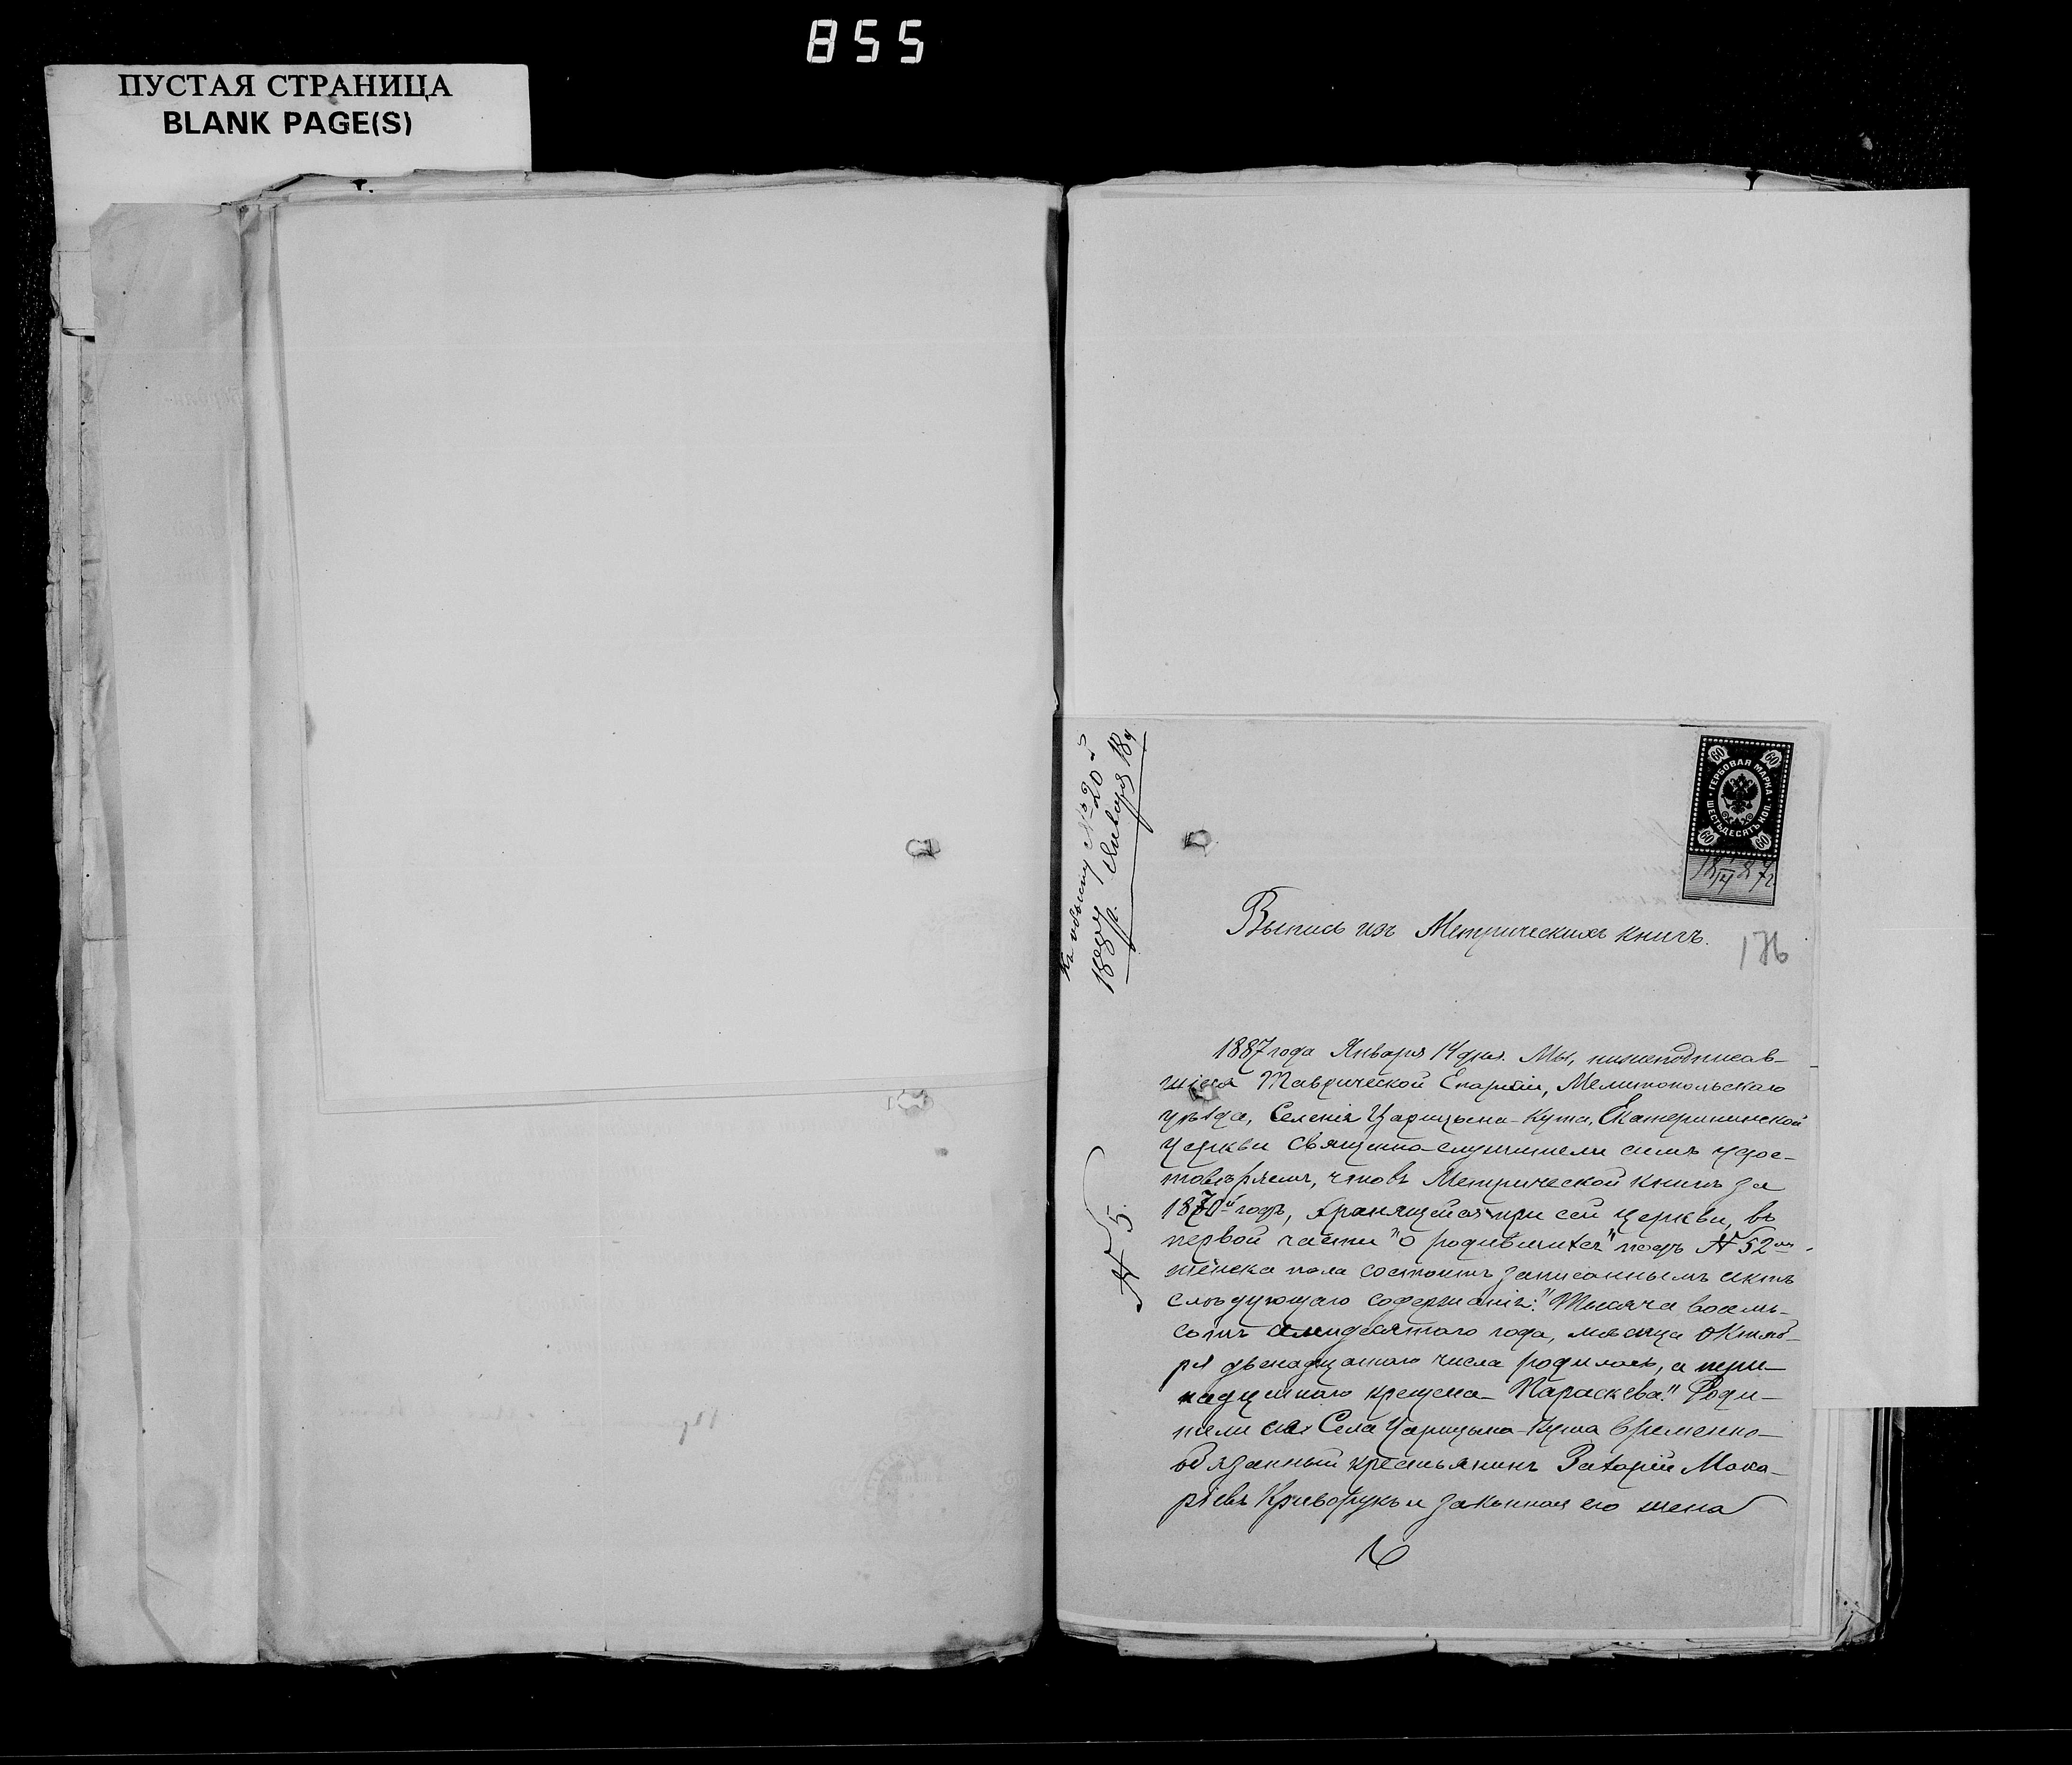 855
ПУСТАЯ СТРАНИЦА
BLANK PAGE(S)
Къ обыску № 20й
1887 р. Января 18 д
60 60
ГЕРБОВАЯ МАРКА
ШЕСТЬДЕСЯТЪ КОП.
60 60
18 87 г.
Выпись изъ Метрическихъ книгъ.
176
№ 5.
1887 года Января 14 дня. Мы, нижеподписав-
шіеся Таврической Епархіи, Мелитопольскаго
уѣзда, Селенія Царицына-Кута, Екатерининской
Церкви Священно-служители симъ удос-
товѣряемъ, что въ Метрической книгѣ за
1870й годъ, хранящейся при сей церкви, въ
первой части "о родившихся" подъ № 52мъ
женска пола состоитъ записаннымъ актъ
слѣдующаго содержанія: "Тысяча восемь-
сотъ семидесятаго года, мѣсяца Октяб-
ря двенадцатаго числа родилась, а три-
надцатаго крещена Параскева." Роди-
тели ея: Села Царицына-Кута временно-
обязанный крестьянинъ Захарій Мака-
ріевъ Криворукъ и законная его жена